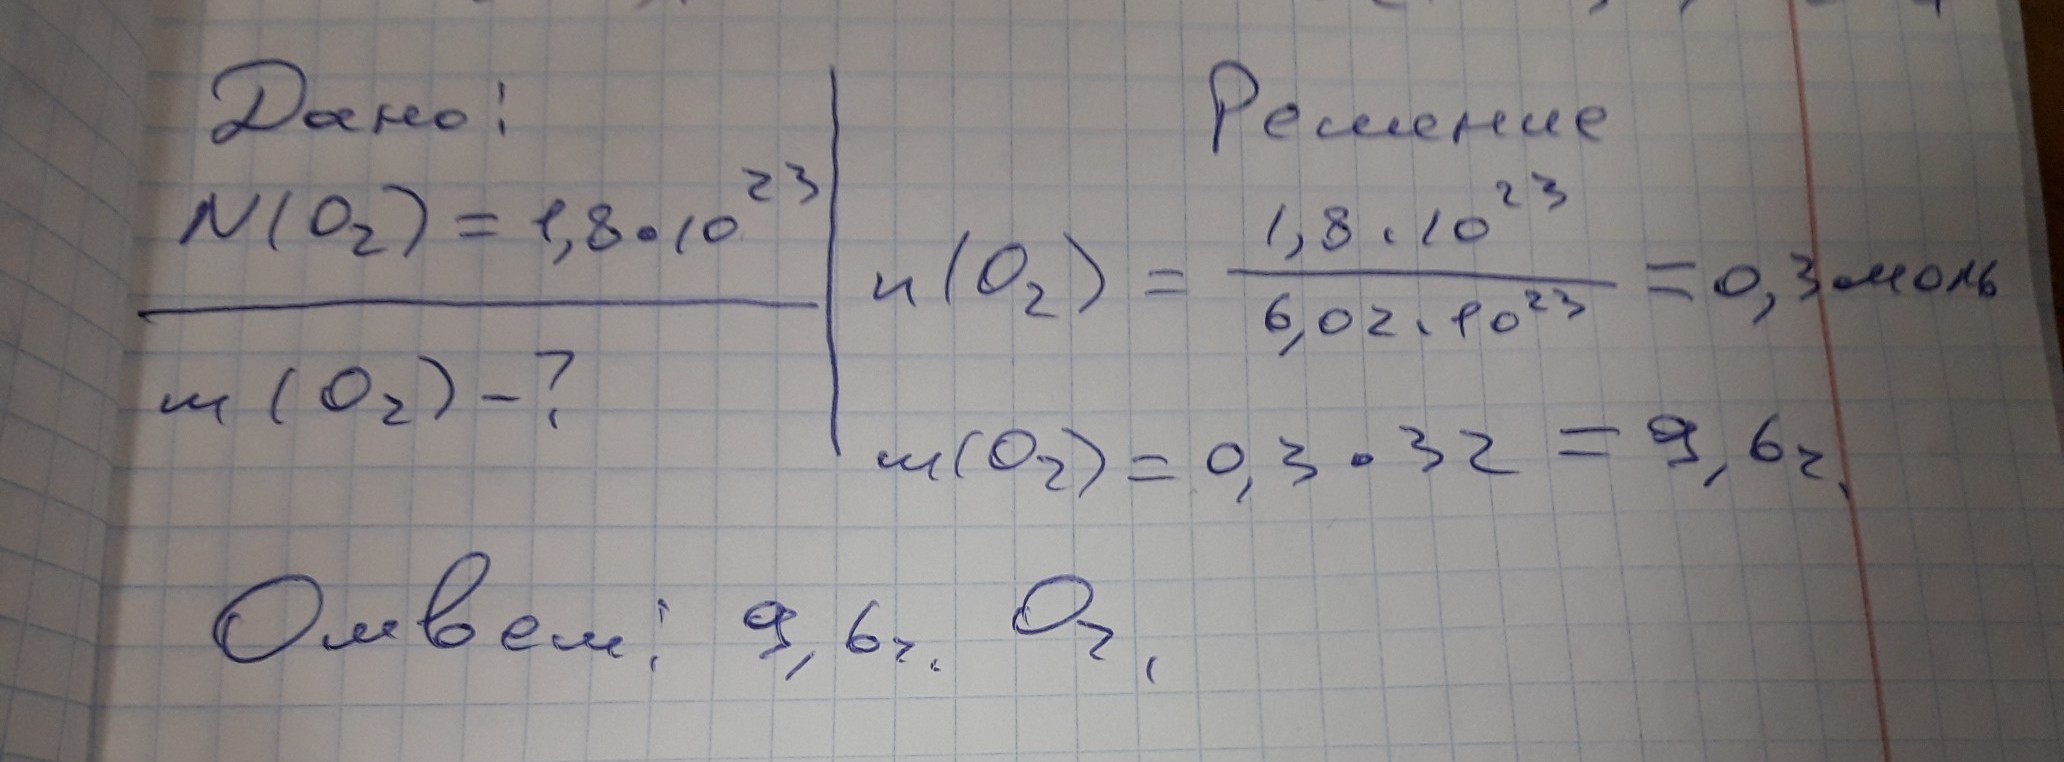 Дано:
N(O₂) = 1,8 · 10²³
m(O₂) - ?
Решение
n(O₂) = 1,8 · 10²³ / 6,02 · 10²³ = 0,3 моль
m(O₂) = 0,3 · 32 = 9,6 г.
Ответ: 9,6 г. O₂.